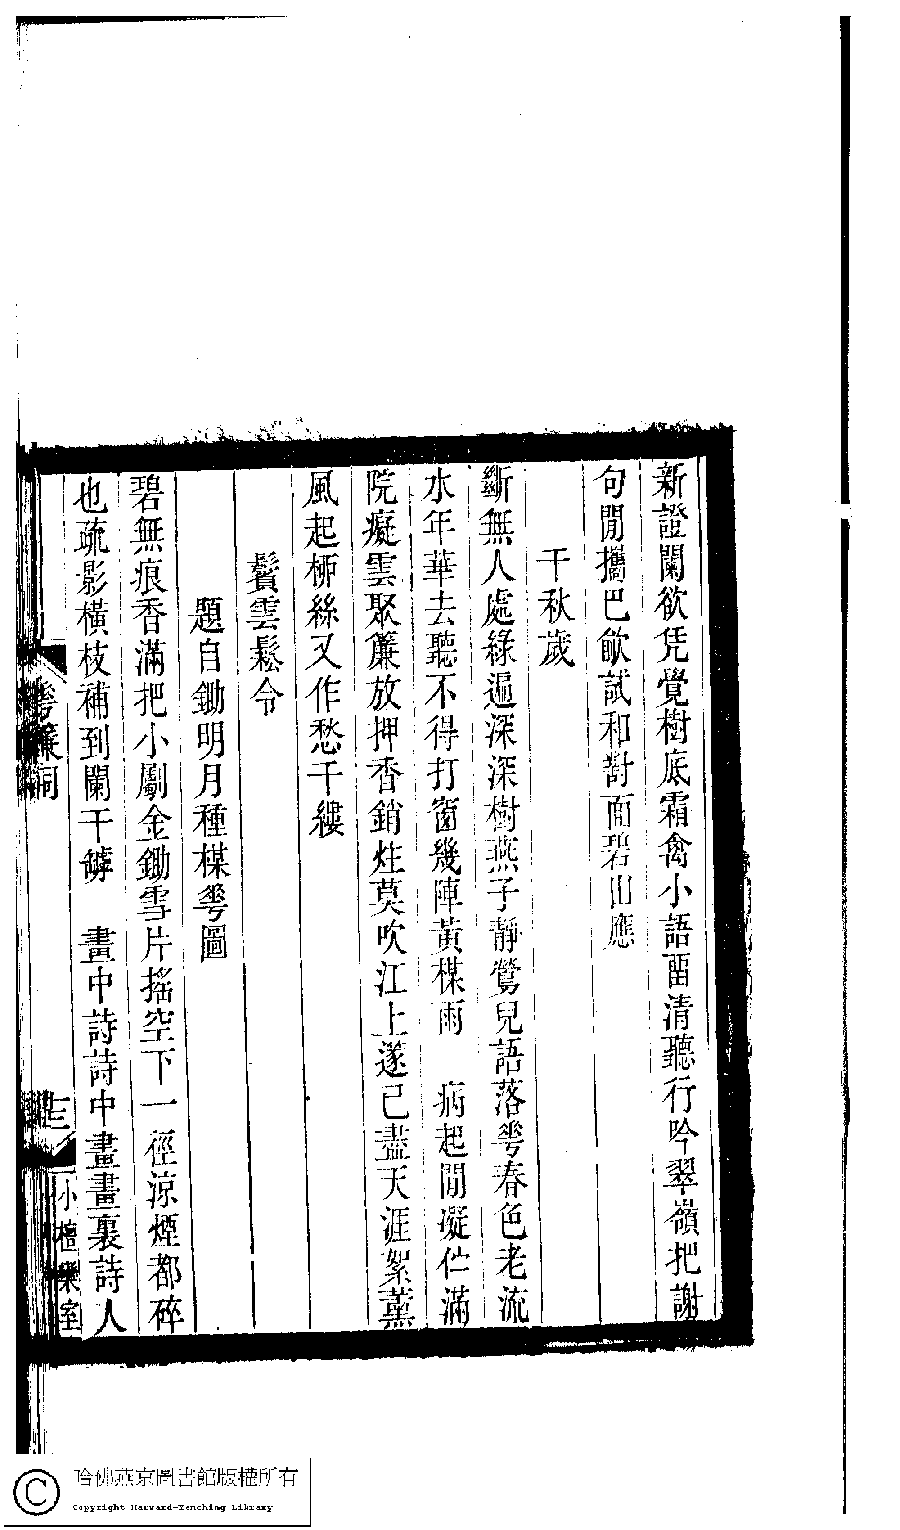 新證闌欲凭覺樹底霜禽小語畱清聽行吟翠嶺把謝
句閒攜巴歈試和對面碧山應
千秋歲
斷無人處綠遍深深樹燕子靜鶯兒語落蕚春色老流
水年華去聽不得打窗幾陣黃楳雨　病起閒凝伫滿
院癡雲聚簾放押香銷炷莫吹江上篴已盡天涯絮薰
風起桺絲又作愁千縷
鬢雲鬆令
題自鋤明月種楳蕚圖
碧無痕香滿把小劚金鋤雪片搖空下一徑涼煙都碎
也疏影橫枝補到闌干罅　畫中詩詩中畫畫裏詩人
簾詞
小檀欒室
哈佛燕京圖書館版權所有
Copyright Harvard-Yenching Library